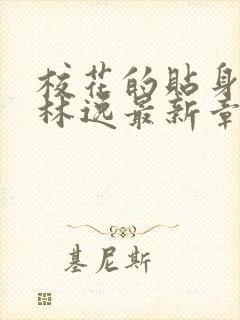 校花的贴身
林逸最新章
基尼斯